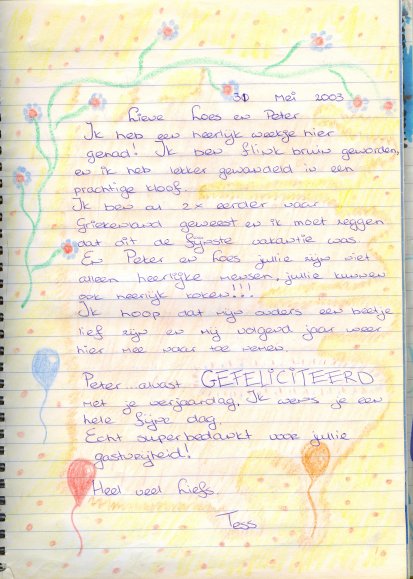 31 Mei 2003
Lieve Loes en Peter
Ik heb een heerlijk weekje hier
gehad! Ik ben flink bruin geworden,
en ik heb lekker gewandeld in een
prachtige kloof.
Ik ben al 2x eerder naar
Griekenland geweest en ik moet zeggen
dat dit de fijnste vakantie was.
En Peter en Loes jullie zijn niet
alleen heerlijke mensen, jullie kunnen
ook heerlijk koken!!!
Ik hoop dat mijn ouders een beetje
lief zijn en mij volgend jaar weer
hier mee naar toe nemen.
Peter... alvast GEFELICITEERD
met je verjaardag. Ik wens je een
hele fijne dag.
Echt superbedankt voor jullie
gastvrijheid!
Heel veel Liefs.
Tess